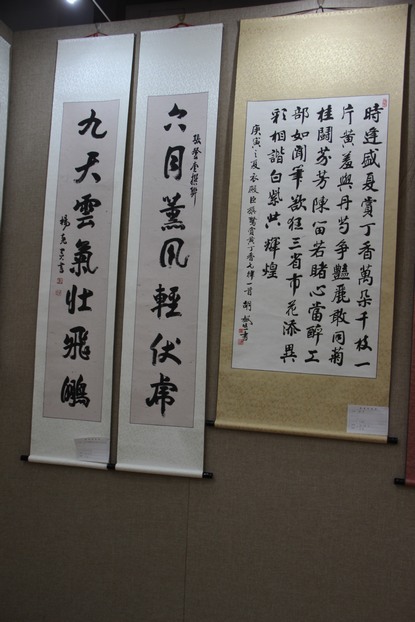 時逢盛夏賞丁香萬朵千枝一
片黄羞與丹芍爭豔麗敢同菊
桂鬪芬芳陳笛若睹心當醉工
部如聞筆欲狂三省市花添異
彩相諧白紫共輝煌
庚寅之夏衣殿臣旅賞黄丁香一首
六月薰風輕伏虎
九天雲氣壯飛鵬